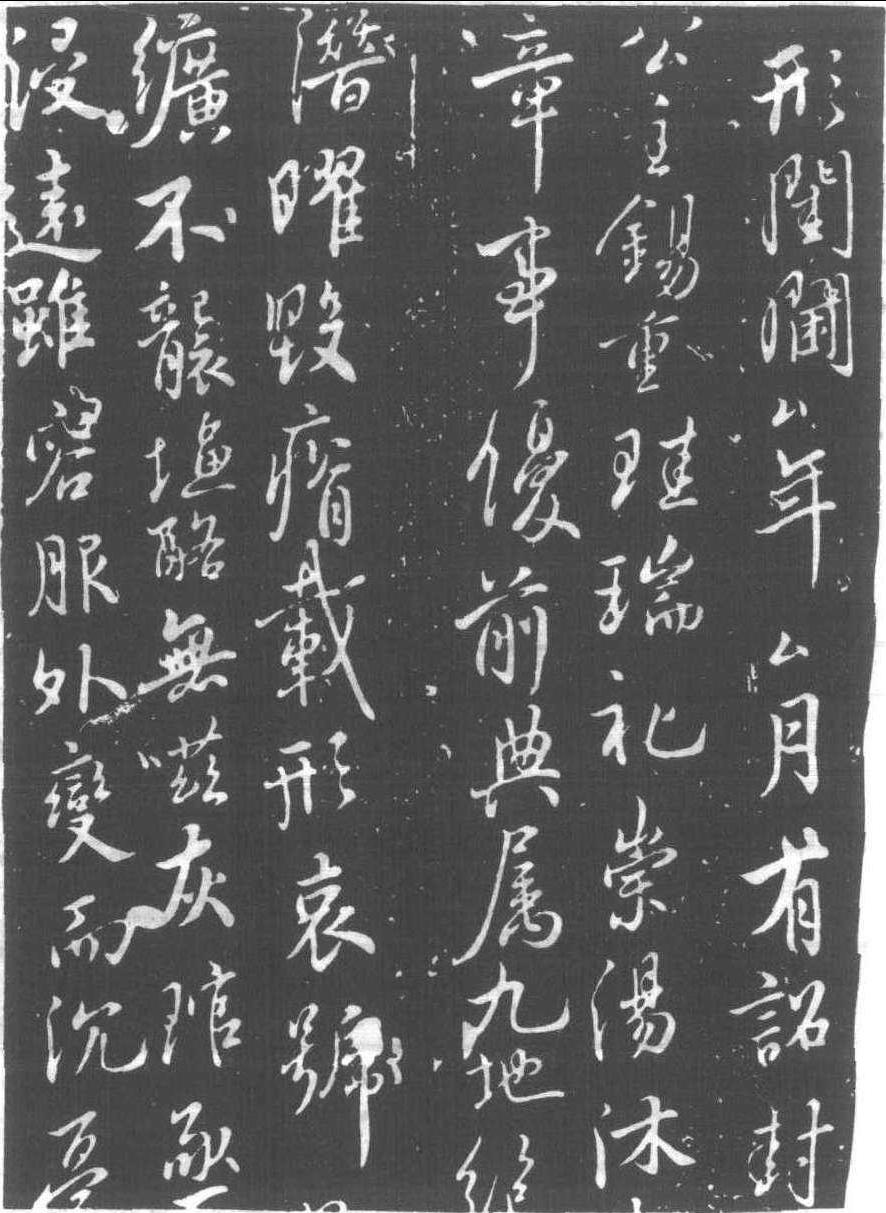 形閨閫厶年厶月有詔封
公主錫重珪瑞礼崇湯沐
章事優前典属九地絕
潛曜毀瘠載形哀號
纊不襲塩酪無嗞灰琯亟
浸遠雖容服外變而沉憂